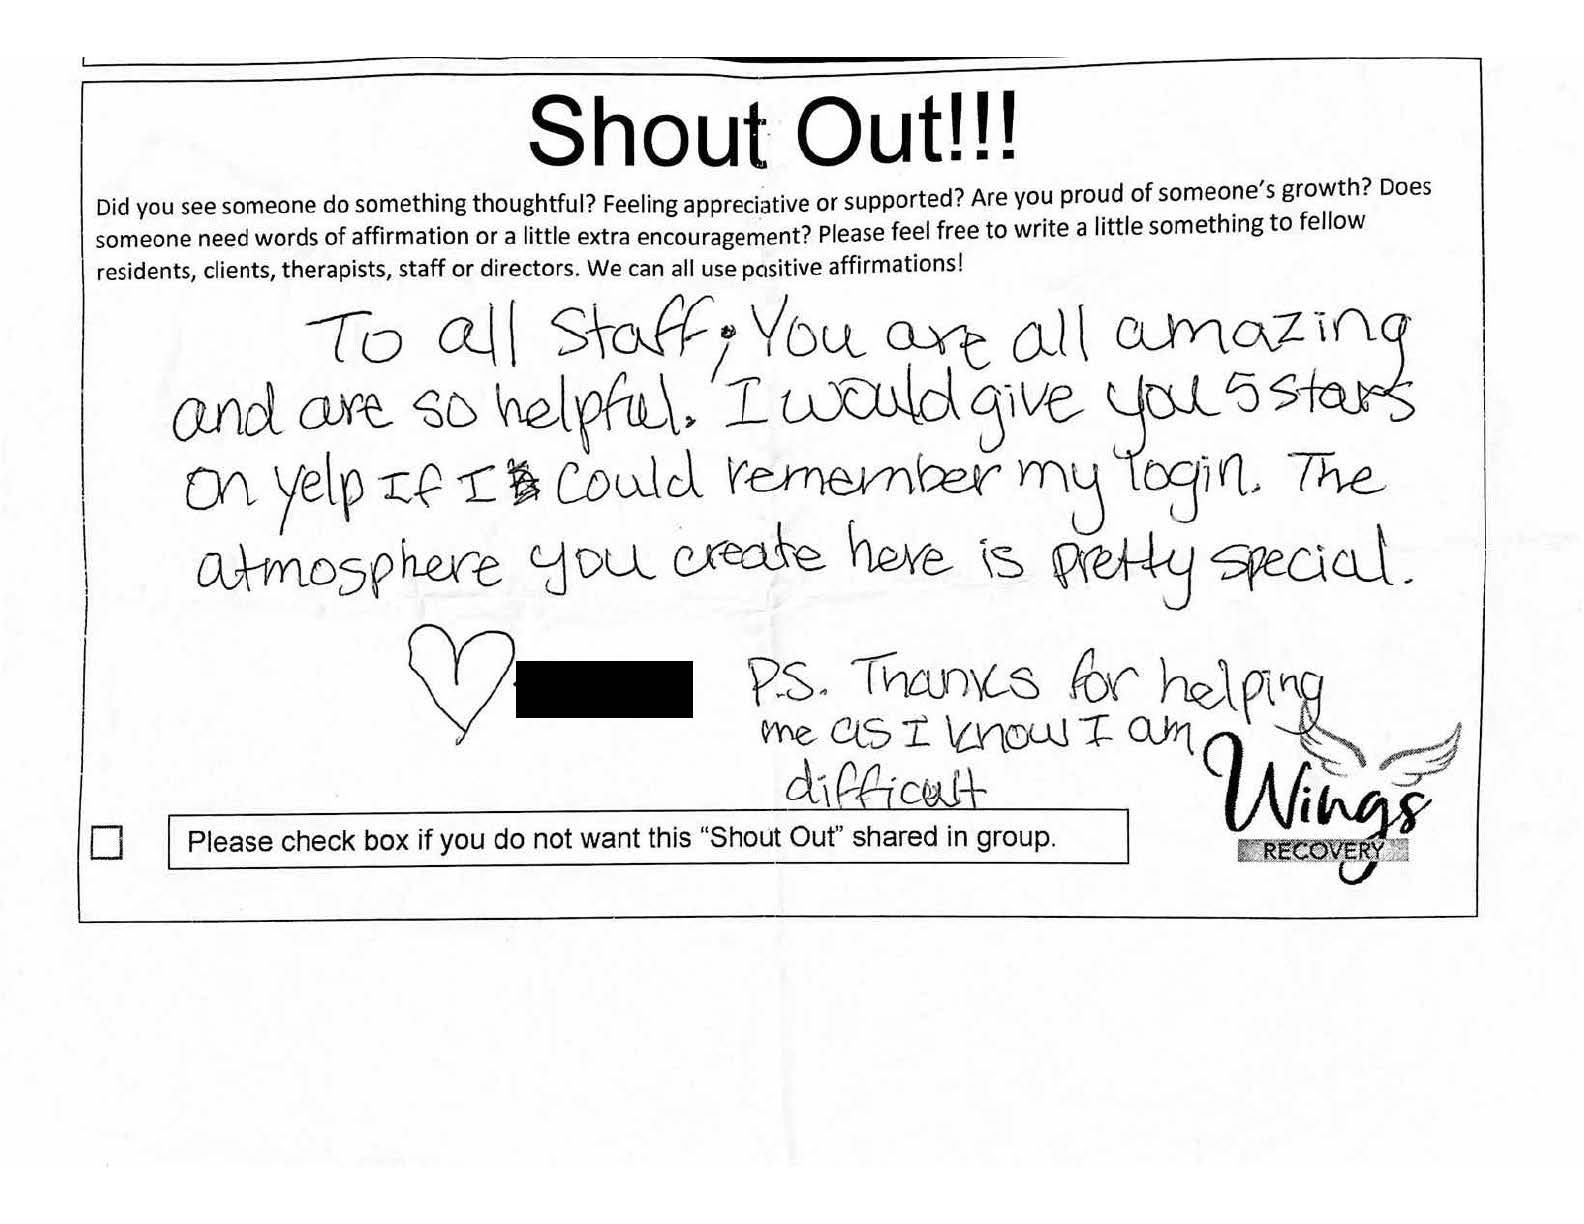 Shout Out!!!
Did you see someone do something thoughtful? Feeling appreciative or supported? Are you proud of someone's growth? Does
someone need words of affirmation or a little extra encouragement? Please feel free to write a little something to fellow
residents, clients, therapists, staff or directors. We can all use positive affirmations!
To all Staff; You are all amazing
and are so helpful. I would give you 5 stars
on yelp If I could remember my login. The
atmosphere you create here is pretty special.
P.S. Thanks for helping
me as I know I am
difficult
Please check box if you do not want this “Shout Out” shared in group.
Wings
RECOVERY